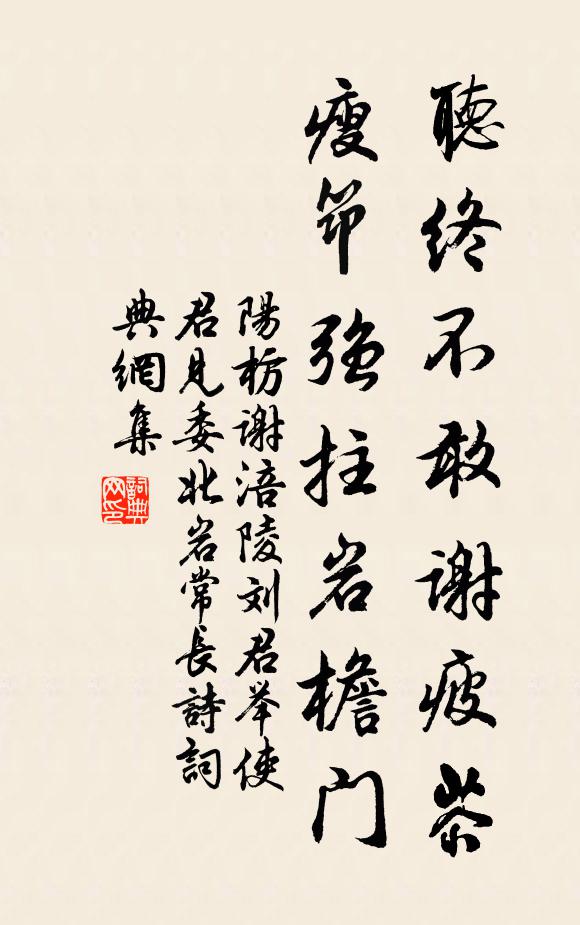 聽終不敢謝疲苶
瘦筇强拄岩檐門
陽枋謝涪陵刘君举使
君見委北岩常長詩詞
典網集
詞典
网印